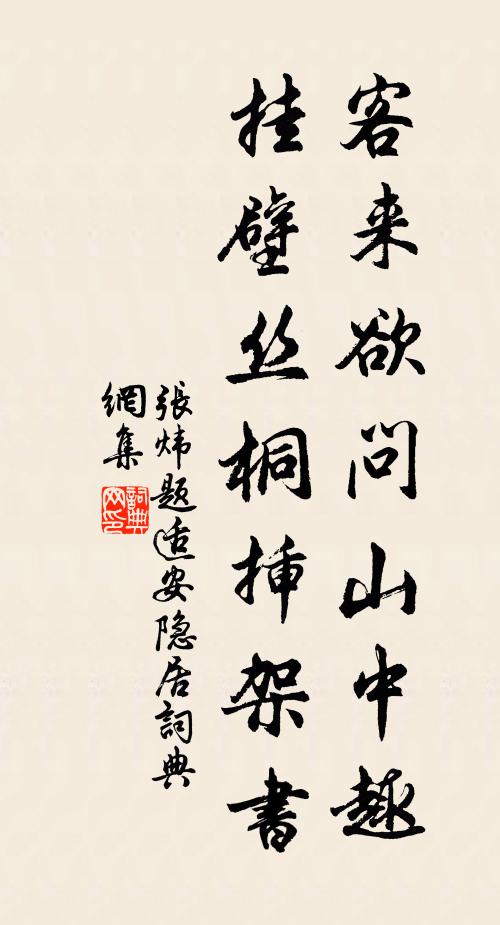 客来欲问山中趣
挂壁丝桐插架書
張炜题适安隐居詞典
網集
詞典
网印